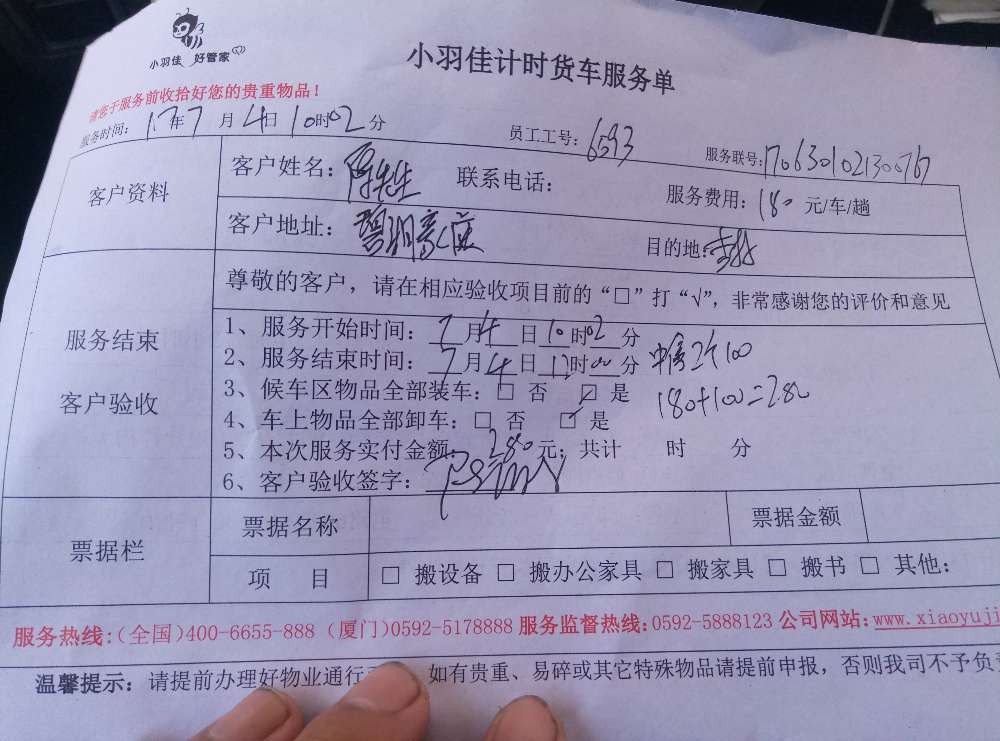 小羽佳 好管家
小羽佳计时货车服务单
请您于服务前收拾好您的贵重物品！
服务时间：17年7月4日10时02分 员工工号：6593 服务联号：17063010213007
客户资料 客户姓名：陈先生 联系电话： 服务费用：180元/车/趟
客户地址：碧玥豪庭 目的地：
尊敬的客户，请在相应验收项目前的“□”打“√”，非常感谢您的评价和意见
服务结束
客户验收
1、服务开始时间：7月4日10时02分
2、服务结束时间：7月4日12时00分
3、候车区物品全部装车：□ 否 ☑ 是 180+100=280
4、车上物品全部卸车：□ 否 ☑ 是
5、本次服务实付金额：280元；共计 时 分
6、客户验收签字：
票据栏 票据名称 票据金额
项 目 □ 搬设备 □ 搬办公家具 □ 搬家具 □ 搬书 □ 其他：
服务热线：(全国)400-6655-888 (厦门)0592-5178888 服务监督热线：0592-5888123 公司网站：www.xiaoyuji
温馨提示：请提前办理好物业通行 如有贵重、易碎或其它特殊物品请提前申报，否则我司不予负